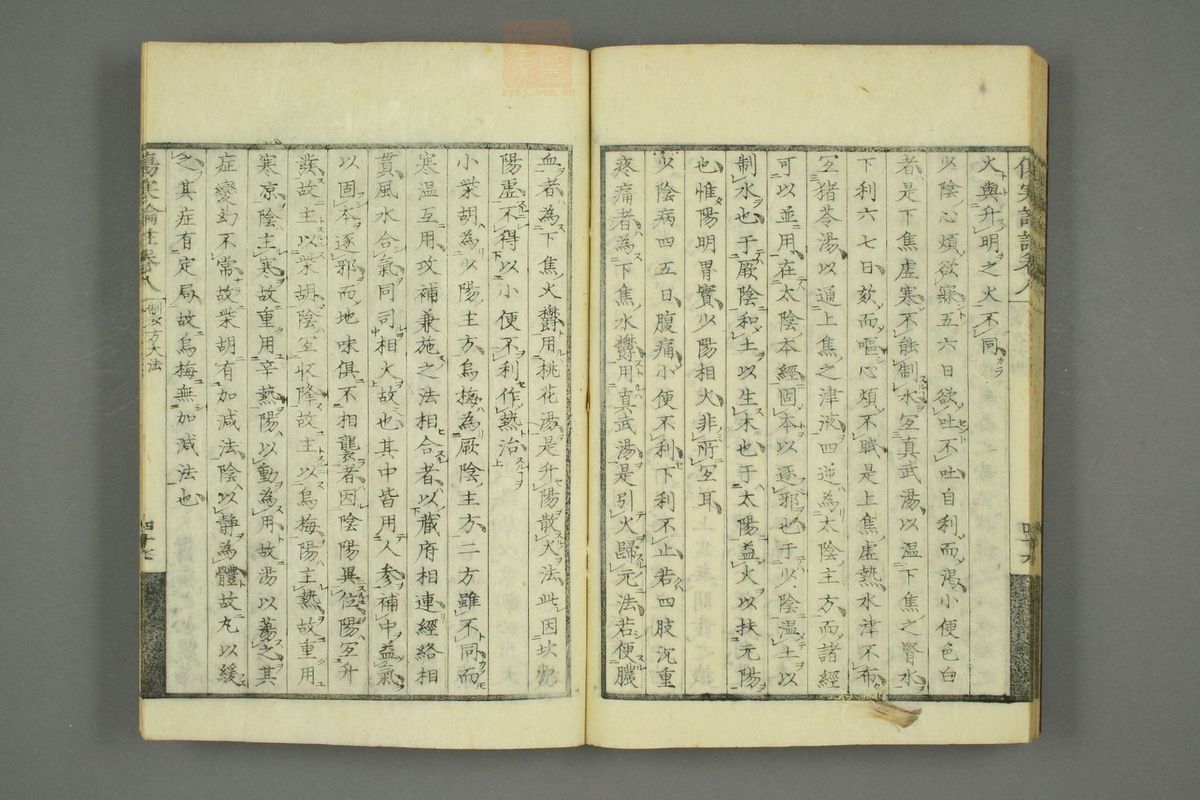 火與升明之火不同
少陰心煩欲寐五六日欲吐不吐自利而渴小便色白
者是下焦虛寒不能制水宜真武湯以溫下焦之腎水
下利六七日欬而嘔心煩不眠是上焦虛熱水津不布
宜猪苓湯以通上焦之津液四逆為太陰主方而諸經
可以並用在太陰本經固本以逐邪也于少陰溫土以
制水也于厥陰和土以生木也于太陽益火以扶元陽
也惟陽明胃實少陽相火非所宜耳
少陰病四五日腹痛小便不利下利不止若四肢沉重
疼痛者為下焦水鬱用真武湯是引火歸元法若便膿
血者為下焦火鬱用桃花湯是升陽散火法此因坎
陽虛不得以小便不利作熱治
小柴胡為少陽主方烏梅為厥陰主方二方雖不同而
寒溫互用攻補兼施之法相合者以藏府相連經絡相
貫風水合氣同司相火故也其中皆用人參補中益氣
以固本逐邪而地味俱不相襲者因陰陽異位陽宜升
發故主以柴胡陰宜收降故主以烏梅陽主熱故重用
寒涼陰主寒故重用辛熱陽以動為用故湯以蕩之其
症變幻不常故柴胡有加減法陰以靜為體故丸以緩
之其症有定局故烏梅無加減法也
傷寒論註卷八
製方大法